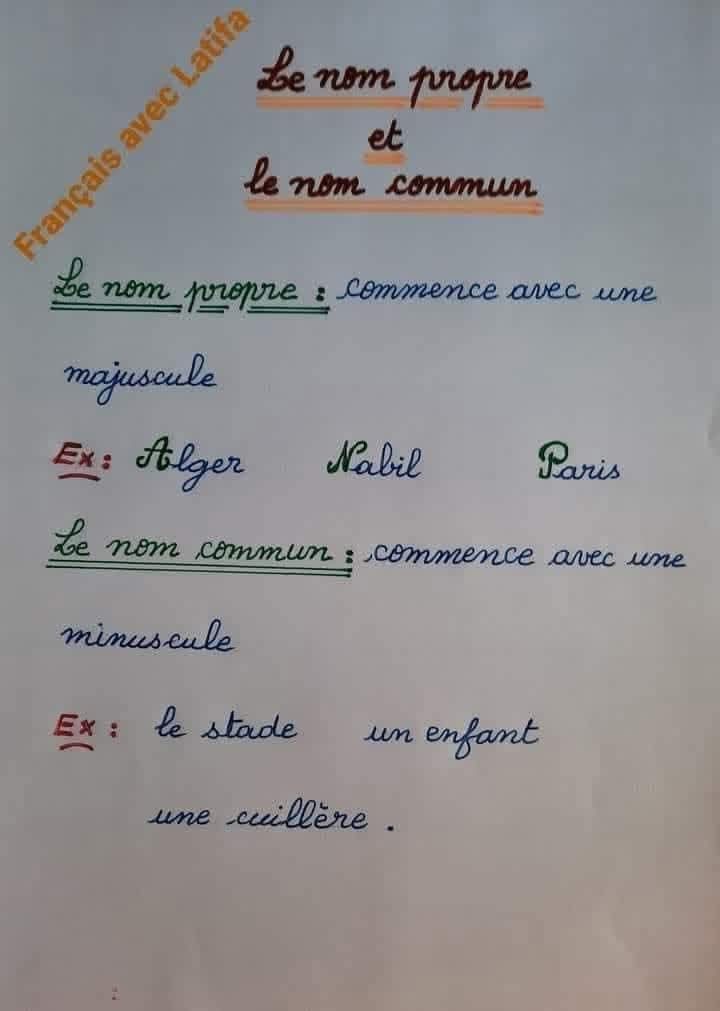 Français avec Latifa
Le nom propre
et
le nom commun
Le nom propre : commence avec une
majuscule
Ex : Alger Nabil Paris
Le nom commun : commence avec une
minuscule
Ex : le stade un enfant
une cuillère .